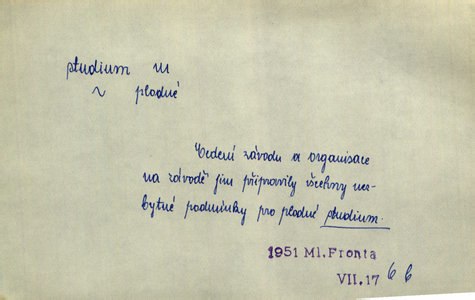 studium III
~ plodné
Vedení závodu a organisace
na závodě jim připravily všechny nez-
bytné podmínky pro plodné studium.
1951 Ml.Fronta
VII.17 6 6